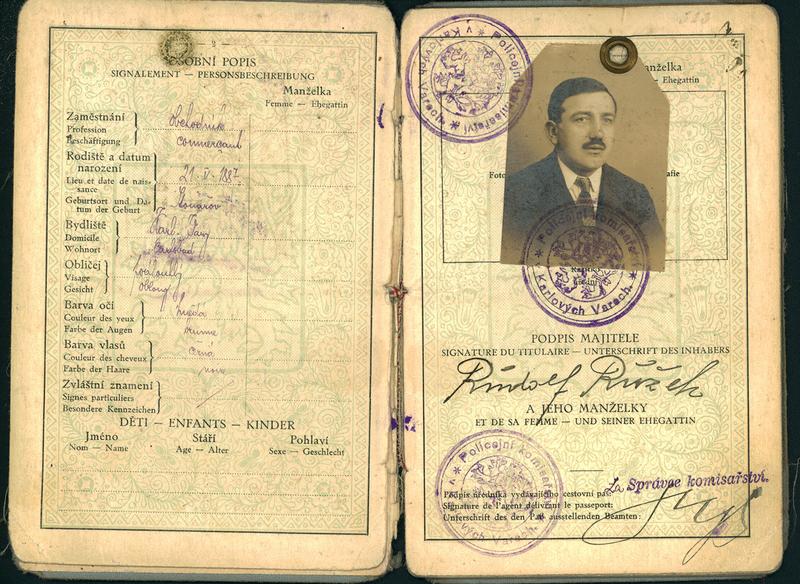 — 2 —
OSOBNÍ POPIS
SIGNALEMENT — PERSONSBESCHREIBUNG
Manželka
Femme — Ehegattin
Zaměstnání
Profession
Beschäftigung
obchodník
commerçant
Rodiště a datum
narození
Lieu et date de nais-
sance
Geburtsort und Da-
tum der Geburt
21. V. 1887
Bydliště
Domicile
Wohnort
Karl. Vary
Carlsbad
Obličej
Visage
Gesicht
oblong
Barva očí
Couleur des yeux
Farbe der Augen
hnědá
brune
Barva vlasů
Couleur des cheveux
Farbe der Haare
černá
noire
Zvláštní znamení
Signes particuliers
Besondere Kennzeichen
DĚTI — ENFANTS — KINDER
Jméno Stáří Pohlaví
Nom — Name Age — Alter Sexe — Geschlecht
Policejní komisařství
v Karlových Varech.
anželka
Ehegattin
Foto
afie
Policejní komisařství
v Karlových Varech.
PODPIS MAJITELE
SIGNATURE DU TITULAIRE — UNTERSCHRIFT DES INHABERS
Rudolf Růžek
A JEHO MANŽELKY
ET DE SA FEMME — UND SEINER EHEGATTIN
Policejní komisařství
v Karlových Varech.
Za Správce komisařství.
Podpis úředníka vydávajícího cestovní pas:
Signature de l'agent délivrant le passeport:
Unterschrift des den Paß ausstellenden Beamten: